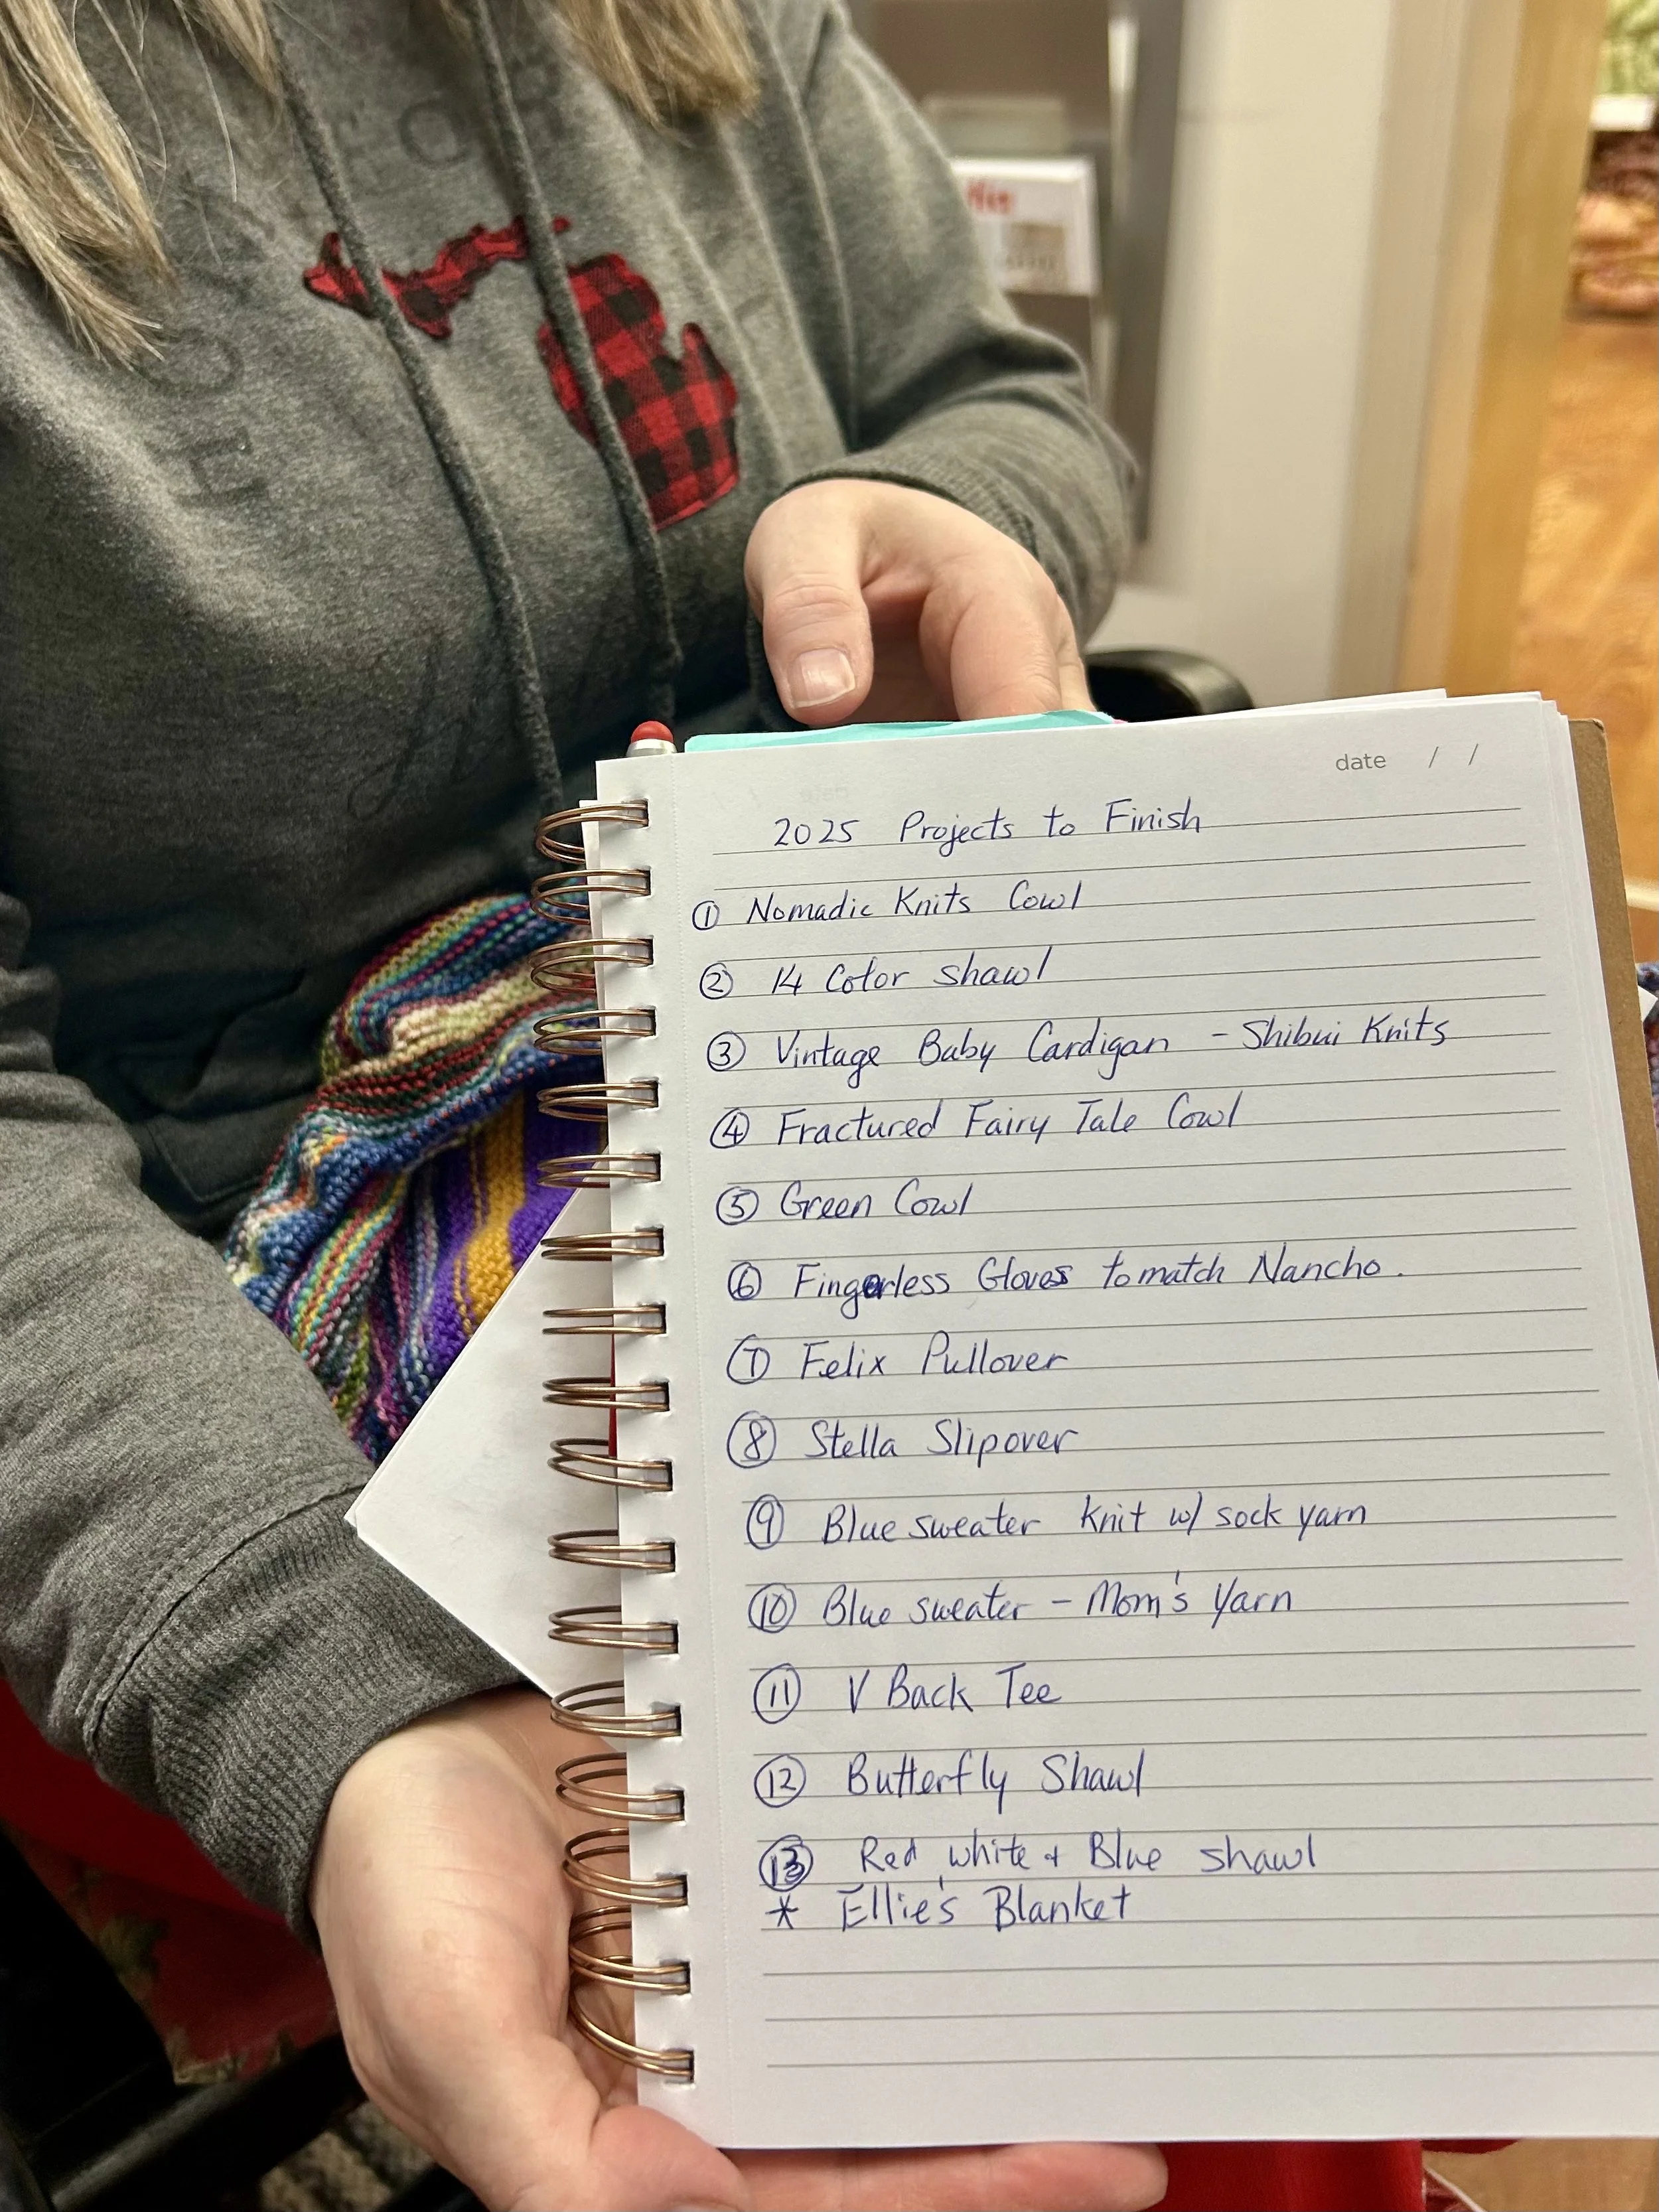 date / /
2025 Projects to Finish
① Nomadic Knits Cowl
② 14 Color shawl
③ Vintage Baby Cardigan - Shibui Knits
④ Fractured Fairy Tale Cowl
⑤ Green Cowl
⑥ Fingerless Gloves to match Nancho.
⑦ Felix Pullover
⑧ Stella Slipover
⑨ Blue sweater knit w/ sock yarn
⑩ Blue sweater - Mom's Yarn
⑪ V Back Tee
⑫ Butterfly Shawl
⑬ Red white + Blue shawl
* Ellie's Blanket